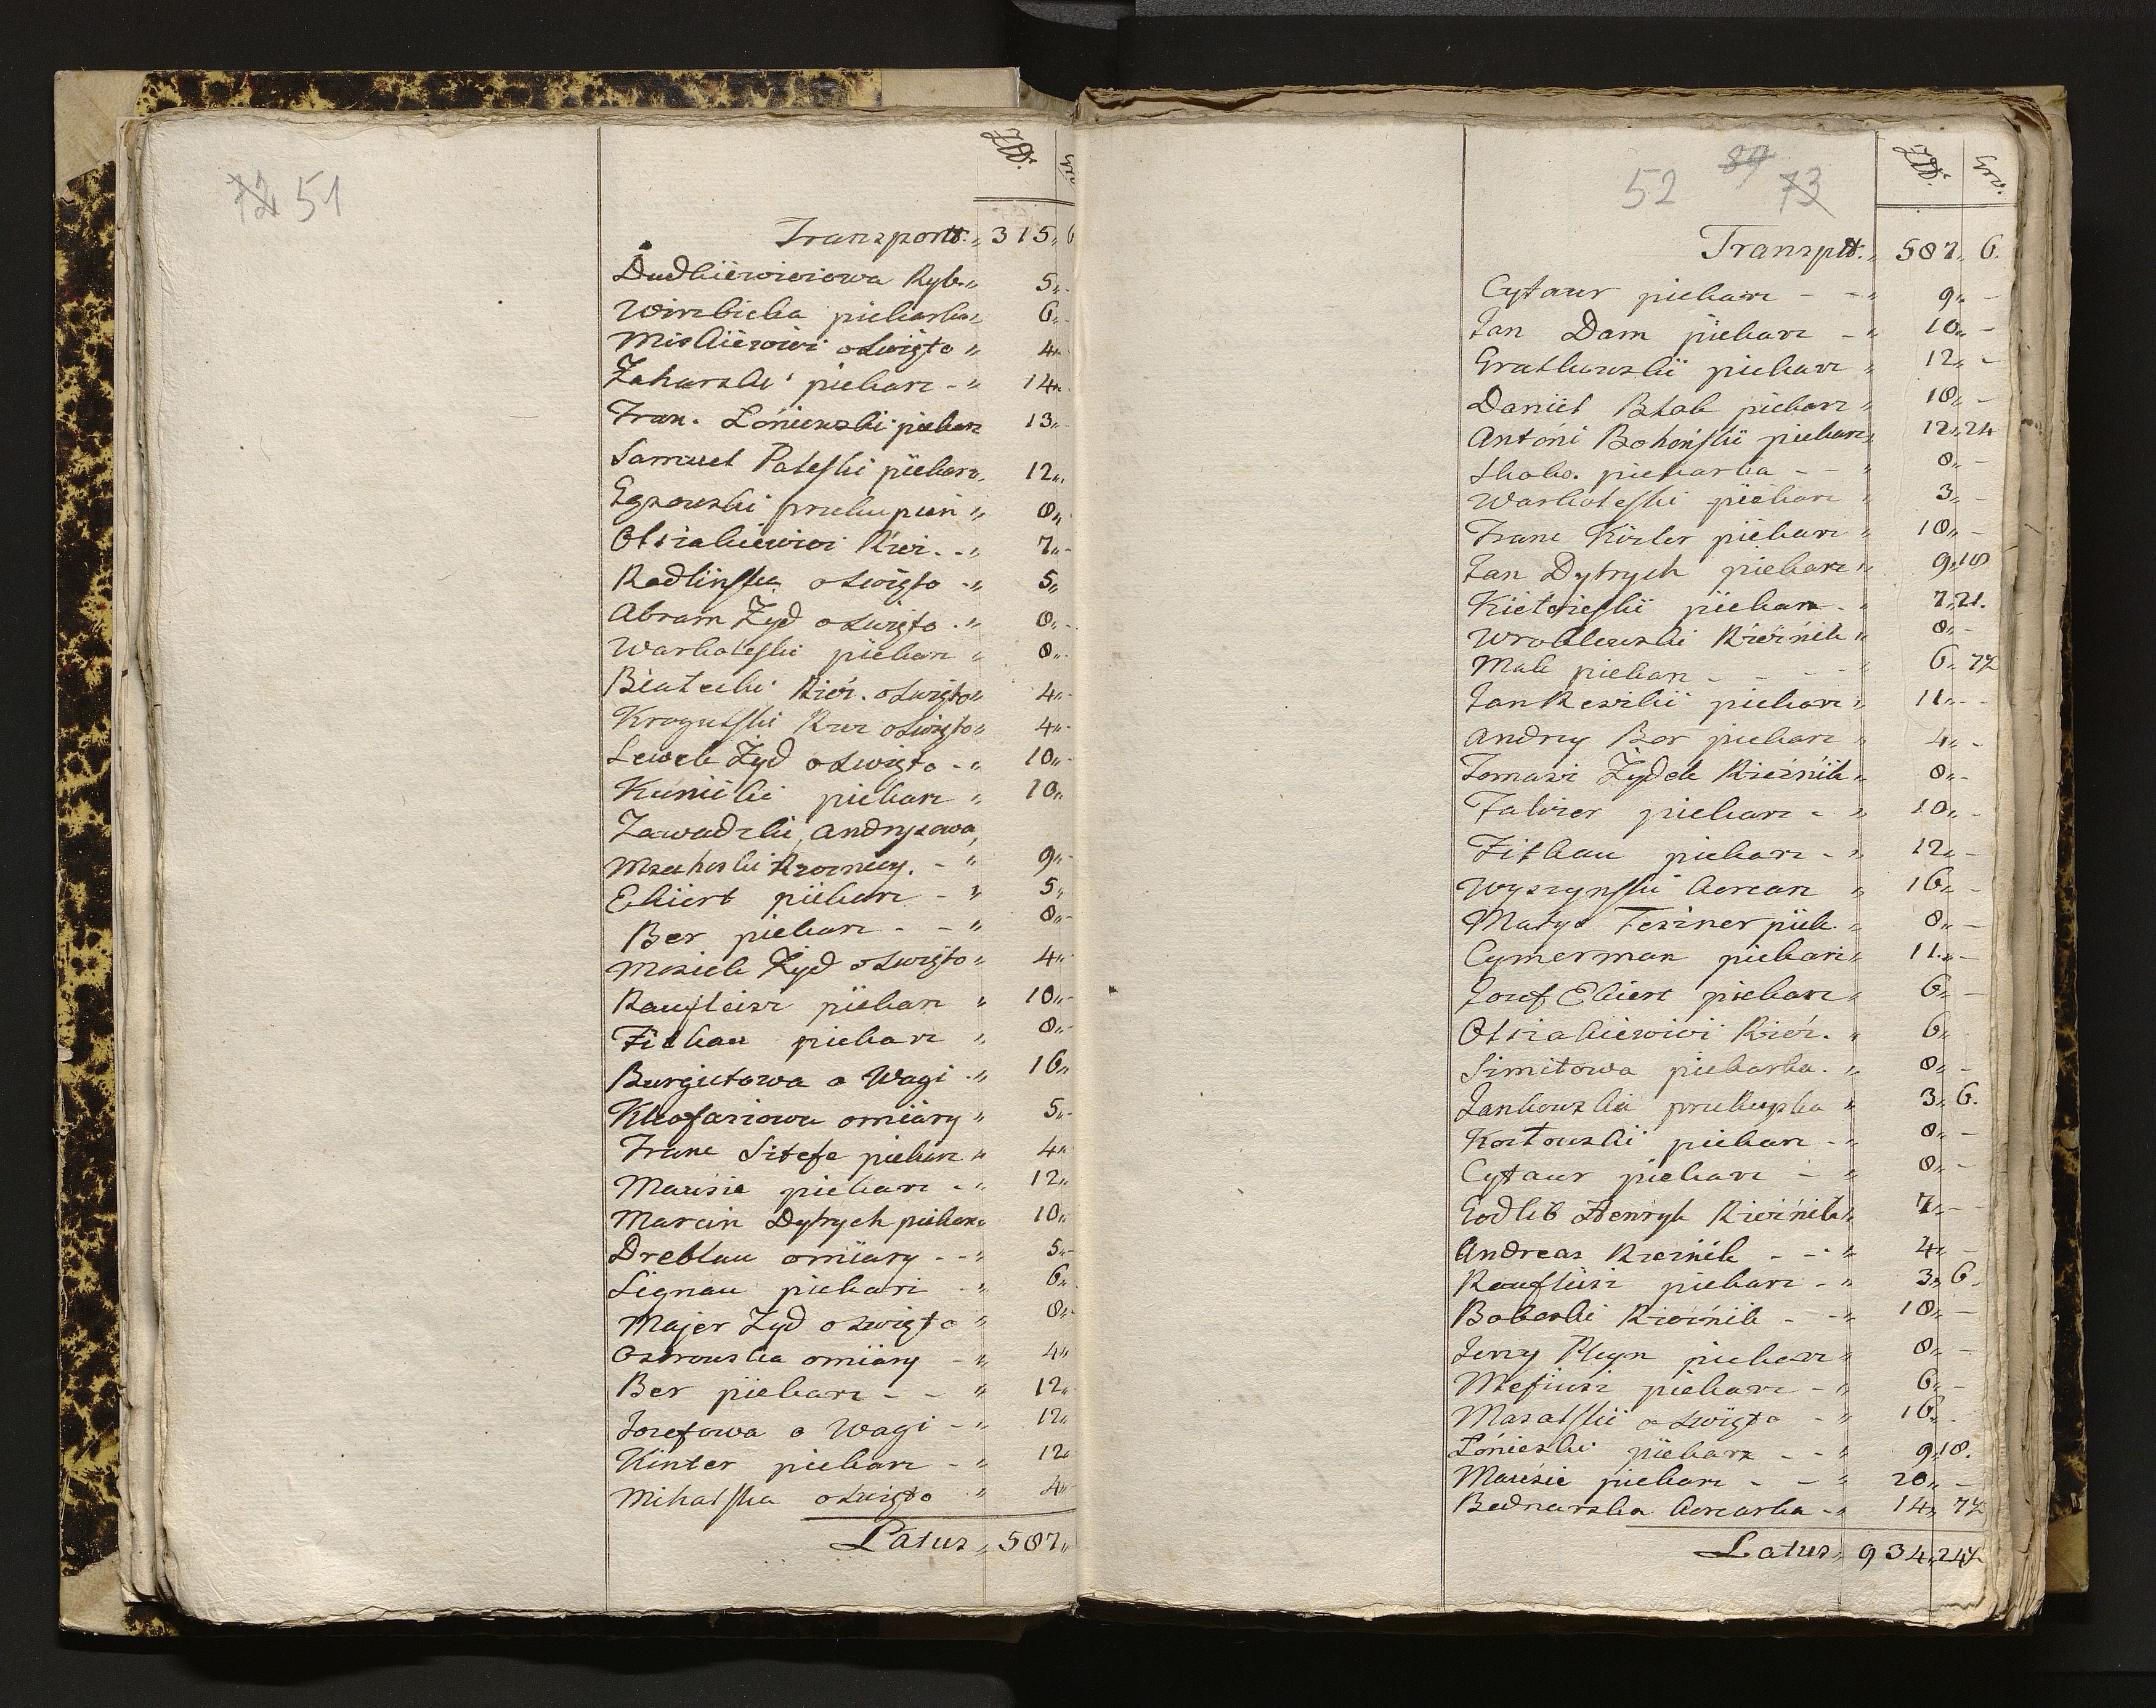 72 51
Złł. Gr.
Transport „ 315„ 6
Dudkiewiczowa Ryb. „ 5„ -
Wirzbicka piekarka „ 6„ -
Miskiewicz o święto „ 4„ -
Zaharski piekarz - „ 14„ -
Fran. Łoniewski piekarz 13„ -
Samuel Paleski piekarz „ 12„
przekupień „ 8„
Olszakiewicz Rzez. - „ 7„ -
Radlińska o święto - „ 5„
Abram Żyd o święto . „ 8„ -
Warkaleski piekarz „ 8„ -
Białecki Rzeź. o święto „ 4„ -
Kragulski Rzez o święto „ 4„ -
Lewek Żyd o święto - „ 10„ -
Kunicki piekarz „ 10„
Zawadzki, Andryszowa,
Rzeznicy. - „ 9„ -
Ekiert piekarz - „ 5„
Ber piekarz - - „ 8„ -
Mosiek Żyd o święto „ 4„
Raufleisz piekarz „ 10„ -
Fitkau piekarz „ 8„ -
Burgietowa o Wagi - „ 16„
Kleofasiowa o miary „ 5„ -
Franc Sitefe piekarz „ 4„
Mausie piekarz - „ 12„
Marcin Dytrych piekarz „ 10„
Dreblau o miary - - „ 5„ -
Lignau piekarz - „ 6„
Majer Żyd o święto „ 8„ -
Ostrowska o miary - „ 4„
Ber piekarz - - „ 12„
Jozefowa o Wagi - „ 12„
Kinter piekarz - „ 12„
Mihalska o święto „ 4„
Latus „ 587„
52 89 73
Złł. Gr.
Transpt. „ 587„ 6.
Cytaur piekarz - - „ 9„ -
Jan Dam piekarz - „ 10„ -
Gratkowski piekarz „ 12„ -
Daniel Btak piekarz „ 18„ -
Antoni Bohoński piekarz „ 12„ 24
piekarka - - „ 8„ -
Warkaleski piekarz „ 3„ -
Franc Kizler piekarz „ 18„ -
Jan Dytrych piekarz „ 9„ 18
piekarz - „ 7„ 21.
Wroblewski Rzeźnik „ 8„ -
Mak piekarz - - - - „ 6„ 7½
Jan Reszkii piekarz „ 11„ -
Andrzy Ber piekarz „ 4„ -
Tomasz Żydek Rzeźnik „ 8„ -
Falwer piekarz - „ 10„ -
Fitkau piekarz - „ 12„ -
Wyszynski korcarz „ 16„ -
Matys Teszner piek. „ 8„ -
Cymerman piekarz „ 11„ -
Jozef Ekiert piekarz „ 6„ -
Olszakiewicz Rzeź. „ 6„
Simitowa piekarka. „ 8„ -
Jankowska przekupka „ 3„ 6.
Kozłowski piekarz - „ 8„ -
Cytaur piekarz - „ 8„ -
Godlib Henryk Rzeźnik „ 7„ -
Andreas Rzeźnik - - „ 4„ -
Raufleisz piekarz - „ 3„ 6.
Boberski Rzeźnik - - „ 18„ -
Jerzy Pleyn piekarz „ 8„ -
Mefiusz piekarz - „ 6„ -
Masalskii o święto - „ 16„ .
Łonieski piekarz - - „ 9„ 18.
Mausie piekarz - - „ 20„ -
Bednarska korcarka - „ 14„ 7½
Latus „ 934„ 24½